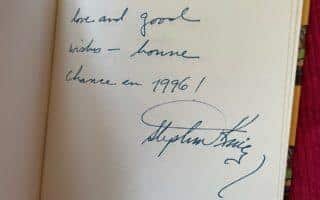 love and good
wishes – bonne
chance en 1996!
Stephen King